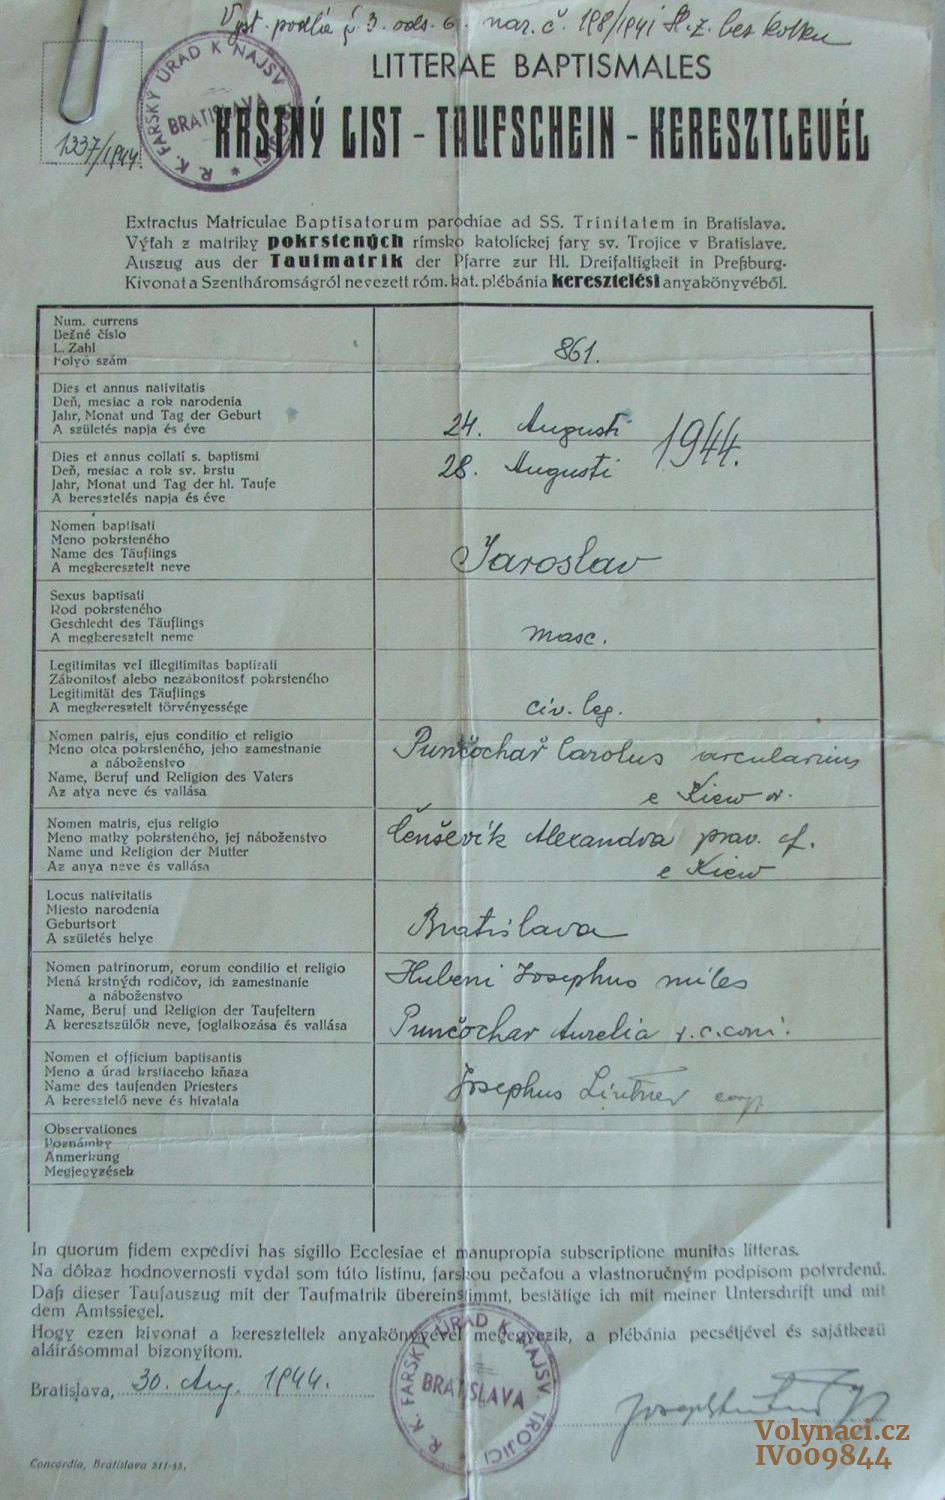 Vyst. podľa § 3. ods. 6. nar. č. 198/1941 Sl. z. bez kolku
LITTERAE BAPTISMALES
KRSTNÝ LIST - TAUFSCHEIN - KERESZTLEVÉL
R. K. FARSKÝ ÚRAD K NAJSV. TROJICI
BRATISLAVA
1337/1944.
Extractus Matriculae Baptisatorum parochiae ad SS. Trinitatem in Bratislava.
Výťah z matriky pokrstených rímsko katolíckej fary sv. Trojice v Bratislave.
Auszug aus der Taufmatrik der Pfarre zur Hl. Dreifaltigkeit in Preßburg.
Kivonat a Szentháromságról nevezett róm. kat. plébánia keresztelési anyakönyvéből.
Num. currens
Bežné číslo
L. Zahl
Folyó szám
861.
Dies et annus nativitatis
Deň, mesiac a rok narodenia
Jahr, Monat und Tag der Geburt
A születés napja és éve
24. Augusti 1944.
Dies et annus collati s. baptismi
Deň, mesiac a rok sv. krstu
Jahr, Monat und Tag der hl. Taufe
A keresztelés napja és éve
28. Augusti
Nomen baptisati
Meno pokrsteného
Name des Täuflings
A megkeresztelt neve
Jaroslav
Sexus baptisati
Rod pokrsteného
Geschlecht des Täuflings
A megkeresztelt neme
masc.
Legitimitas vel illegitimitas baptisati
Zákonitosť alebo nezákonitosť pokrsteného
Legitimität des Täuflings
A megkeresztelt törvényessége
civ. leg.
Nomen patris, ejus conditio et religio
Meno otca pokrsteného, jeho zamestnanie
a náboženstvo
Name, Beruf und Religion des Vaters
Az atya neve és vallása
Punčochař Carolus arcularius
e Kiew
Nomen matris, ejus religio
Meno matky pokrsteného, jej náboženstvo
Name und Religion der Mutter
Az anya neve és vallása
Čenševik Alexandra prav. cf.
e Kiew
Locus nativitatis
Miesto narodenia
Geburtsort
A születés helye
Bratislava
Nomen patrinorum, eorum conditio et religio
Mená krstných rodičov, ich zamestnanie
a náboženstvo
Name, Beruf und Religion der Taufeltern
A keresztszülők neve, foglalkozása és vallása
Hubeni Josephus miles
Punčochar Aurelia r. c. coni.
Nomen et officium baptisantis
Meno a úrad krstiaceho kňaza
Name des taufenden Priesters
A keresztelő neve és hivatala
Josephus Lintner coop.
Observationes
Poznámky
Anmerkung
Megjegyzések
In quorum fidem expedivi has sigillo Ecclesiae et manupropia subscriptione munitas litteras.
Na dôkaz hodnovernosti vydal som túto listinu, farskou pečaťou a vlastnoručným podpisom potvrdenú.
Daß dieser Taufauszug mit der Taufmatrik übereinstimmt, bestätige ich mit meiner Unterschrift und mit
dem Amtssiegel.
Hogy ezen kivonat a kereszteltek anyakönyvével megegyezik, a plébánia pecsétjével és sajátkezü
aláirásommal bizonyitom.
Bratislava, 30. Aug. 1944.
R. K. FARSKÝ ÚRAD K NAJSV. TROJICI
BRATISLAVA
Volynaci.cz
IV009844
Concordia, Bratislava 511-43.